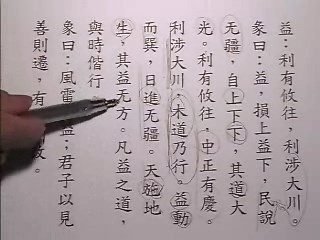 益：利有攸往，利涉大川。
彖曰：益，損上益下，民說
无疆，自上下下，其道大
光。利有攸往，中正有慶。
利涉大川，木道乃行。益動
而巽，日進无疆。天施地
生，其益无方。凡益之道，
與時偕行。
象曰：風雷益；君子以見
善則遷，有